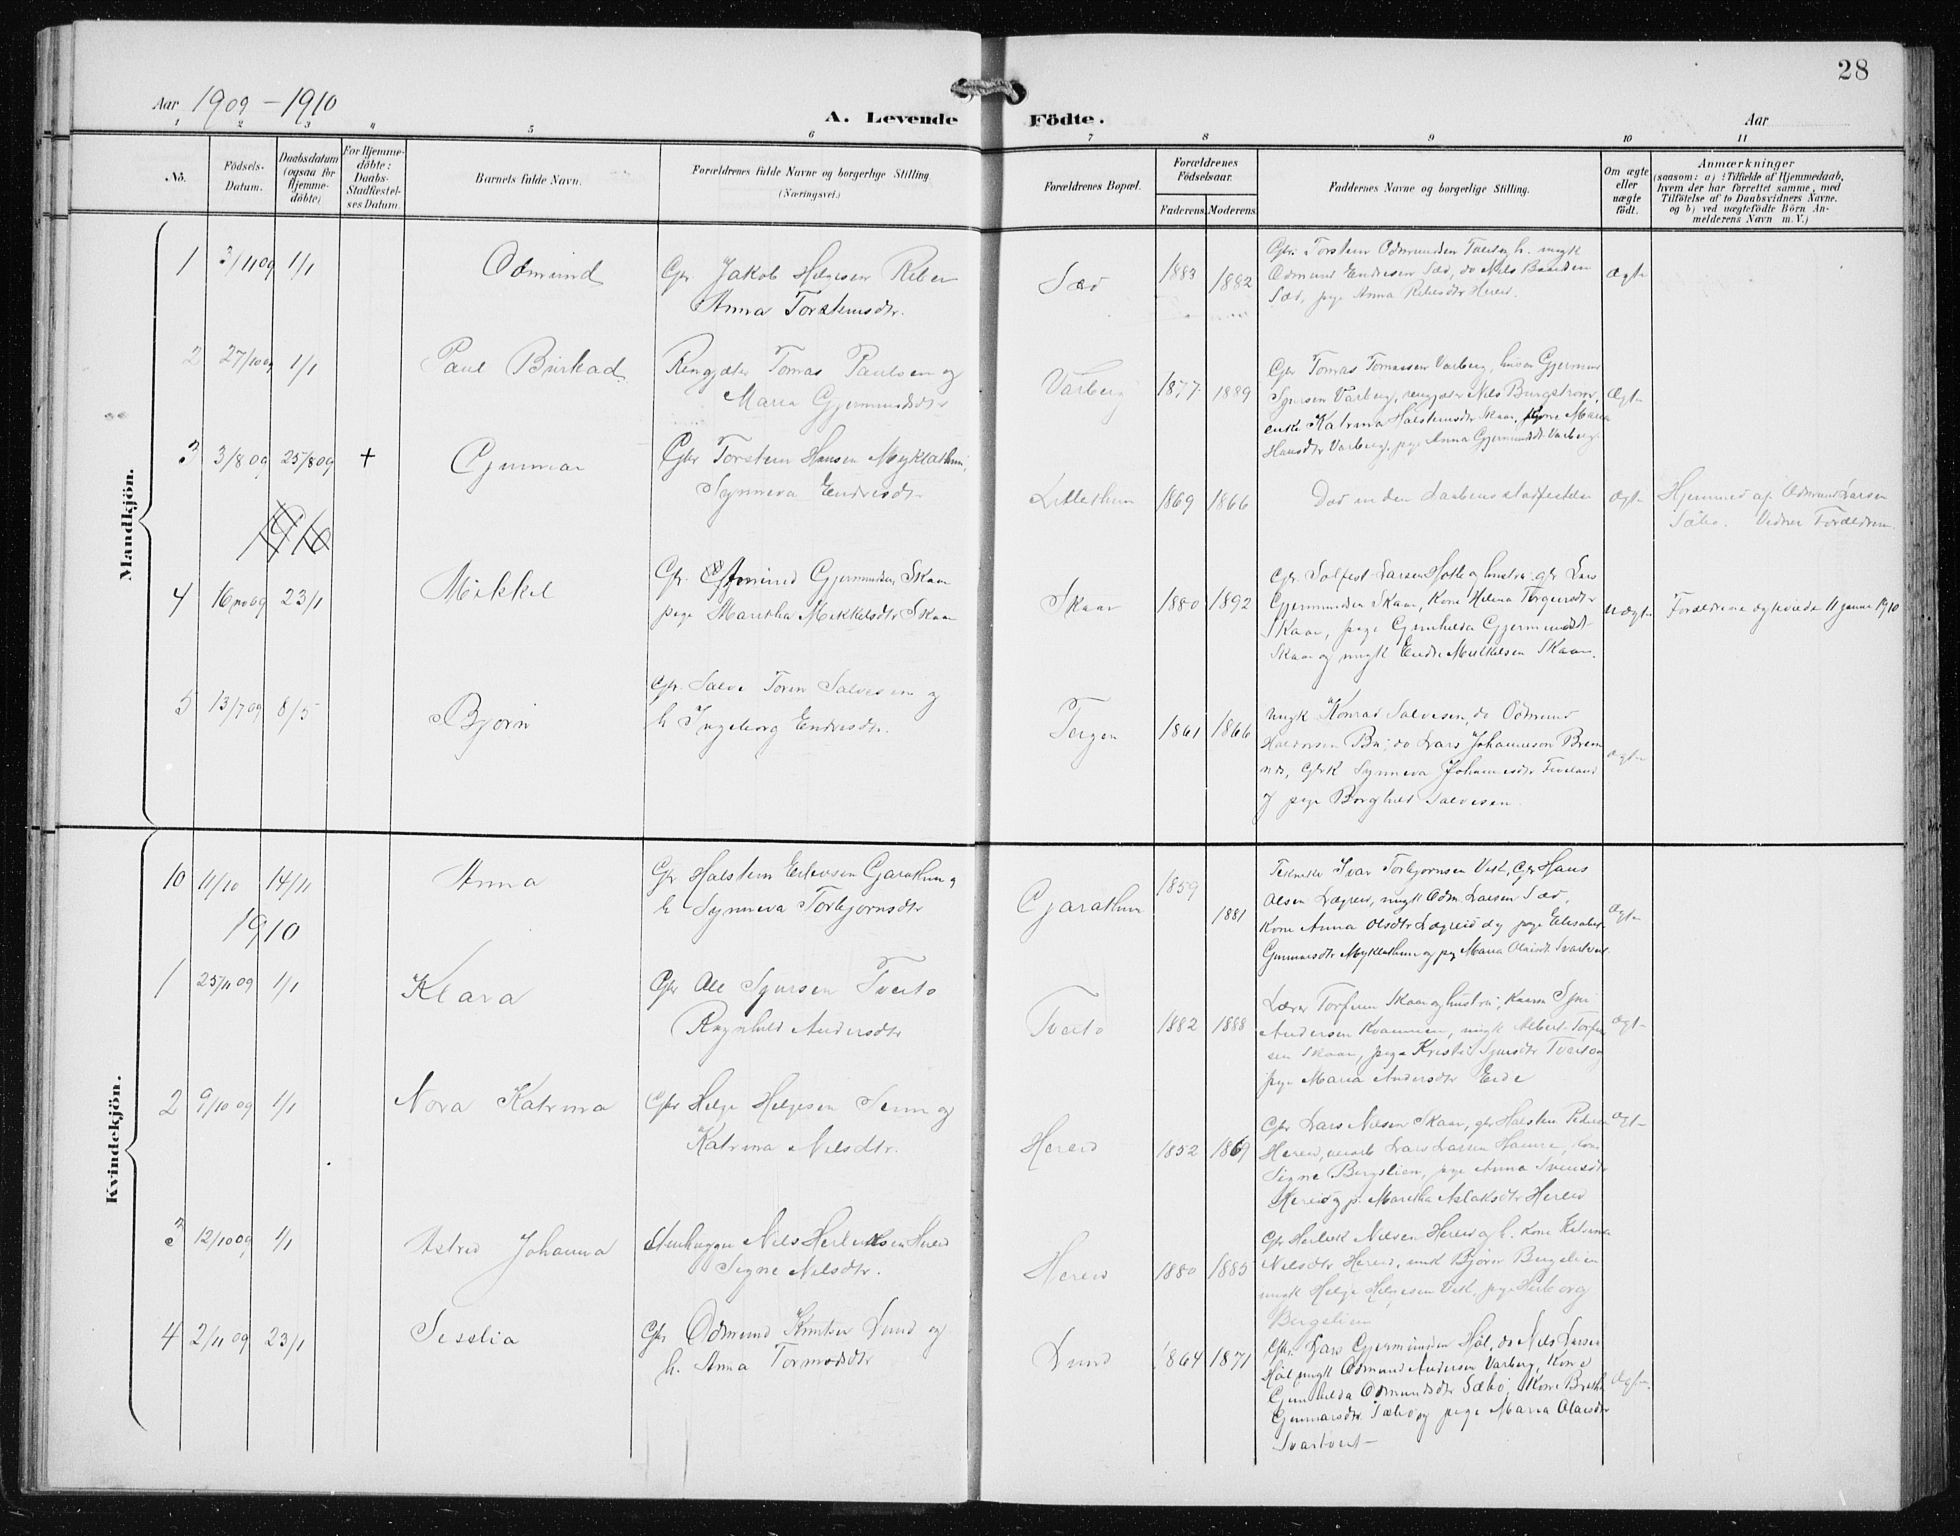 28
Aar 1909 - 1910
A. Levende Födte.
Aar
1 2 3 4 5 6 7 8 9 10 11
No.
Födsels-Datum.
Daabsdatum (ogsaa for Hjemme-döbte)
For Hjemme-döbte: Daabs-Stadfæstel-ses Datum.
Barnets fulde Navn.
Forældrenes fulde Navne og borgerlige Stilling. (Næringsvei.)
Forældrenes Bopæl.
Forældrenes Födselsaar.
Faderens. Moderens.
Faddernes Navne og borgerlige Stilling.
Om ægte eller uægte födt.
Anmærkninger
(saasom: a) i Tilfælde af Hjemmedaab,
hvem der har forrettet samme, med
Tilföielse af to Daabsvidners Navne.
og b) ved uægtefödte Börn An-
melderens Navn m. V.)
Mandkjön.
1 3/11 09 1/1 Odmund Gbr Jakob Helgesen Reber
Anna Torsteinsdtr.
Sæd 1883 1882
Gbr. Torstein Odmundsen Tveit og h. ungk
Odmund Endresen Sæd, do Nils Baardsen
Sæd, pige Anna Hereid.
Ægte
2 27/10 09 1/1 Paul Burkad Rengjæter Tomas Paulsen og
Maria Gjermundsdtr
Varberg 1877 1889
Gbr Tomas Tomassen Varberg, Gjermund
Sjursen Varberg, rengjæter Nils Bergstrøm,
enke Katrina Halsteinsdtr Skaar, kone Maria
Hansdtr Varberg, pige Anna Gjermundsdtr Varberg.
Ægte
3 3/8 09 25/8 09 + Gunnar Gbr Torstein Hansen Myklathun,
Synneva Endresdtr
Litlethun 1869 1866
Død inden Daabens stadfestelse
Ægte
Hjemmed. af Odmund Larsen
Sæbø. Vidner Forældrene.
1910
4 16 nov 09 23/1 Mikkel Gbr. Amund Gjermundsen Skaar
pige Maritha Mikkelsdtr Skaar
Skaar 1880 1892
Gbr. Solfest Larsen og hustru, gbr Lars
Gjermundsen Skaar, kone Helena Torgersdtr
Skaar, pige Gunhilda Gjermundsdt
Skaar og ungk Endre Mikkelsen Skaar.
Uægte
Forældrene ægteviede 11 januar 1910
5 13/7 09 8/5 Bjørn Gbr. Salve Toren Salvesen og
h Ingeborg Endresdtr.
1861 1866
ungk Konrad Salvesen, do Odmund
Haldorsen Bu, do Lars Johannesen
Synneva Johannesdtr
og pige Borghild Salvesen.
Ægte
Kvindekjön.
10 11/10 14/11 Anna Gbr Halstein Garathun og
h Synneva Torbjørnsdtr
Garathun 1859 1881
Ivar Torbjørnsen Vik, Gbr Hans
Olsen Lægreid, ungk Odm. Larsen Sæd,
Kone Anna Olsdtr Lægreid og pige Elisabet
Gunnarsdtr Myklathun og pig Maria Olaisdt Svartveit
Ægte
1910
1 25/11 09 1/1 Klara Gbr Ole Sjursen Tveito
Ragnhild Andersdtr
Tveito 1882 1888
Lærer Torfinn Skaar og hustru,
Andersen Kvamme, ungk Albert Torfin
sen Skaar, pige Kristi Sjursdtr Tveito og
pige Maria Andersdtr Eide
Ægt-
2 9/10 09 1/1 Nora Katrina Gbr Helge Helgesen og
Katrina Nilsdtr.
Hereid 1852 1869
Gbr Lars Nilsen Skaar, gbr Halsten Pedersen
Hereid, Lars Larsen, kone
Signe Bergslien, pige Anna Svensdtr
Hereid og p. Maritha Aslaksdtr Hereid
Ægt-
3 12/10 09 1/1 Astrid Johanna Stenhugger Nils Herleiksen Hereid
Signe Nilsdtr.
Hereid 1880 1885
Gbr Herleik Nilsen Hereid og h. kone Katrina
Nilsdtr Hereid, unk Bjørn Bergslien
ungk Helge Helgesen Vik, pige Herborg
Bergslien
4 2/11 09 23/1 Sesselia Gbr Odmund Knutsen Lund og
h. Anna Tormodsdtr
Lund 1864 1871
Gbr. Lars Gjermundsen Høl, do Nils Larsen
Høl, ungk Odmund Andersen Varberg, Kone
Gunhilda Odmundsdtr Sæbø, Kone Britha
Gunnarsdtr Sæbø og pige Maria Olaisdtr
Svartveit -
Ægte.